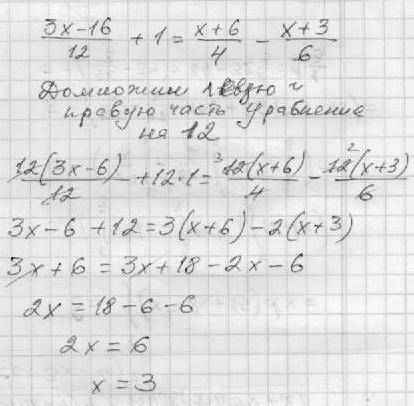 (3x-16)/12 + 1 = (x+6)/4 - (x+3)/6
Домножим левую и
правую часть уравнение
на 12
12(3x-6)/12 + 12·1 = ³12(x+6)/4 - ²12(x+3)/6
3x-6 +12=3(x+6)-2(x+3)
3x+6 = 3x+18-2x-6
2x = 18-6-6
2x = 6
x = 3